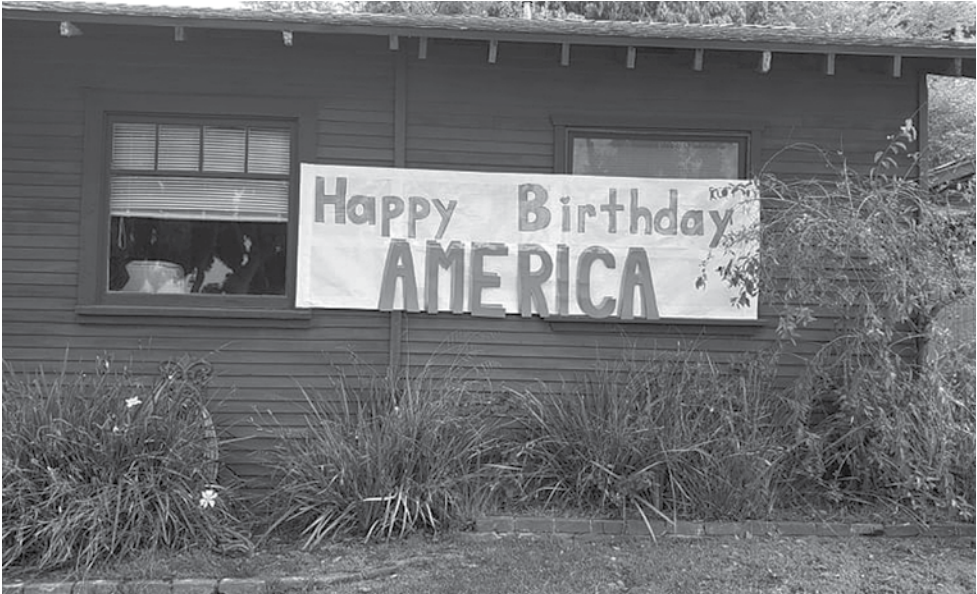 Happy Birthday
AMERICA